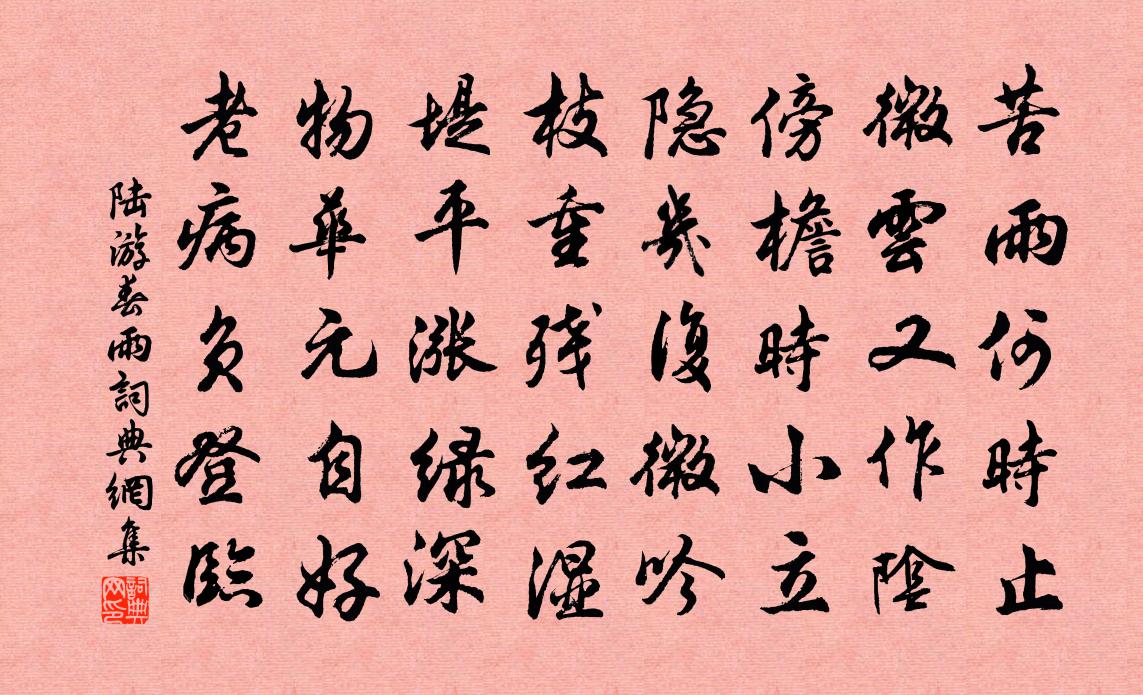 苦雨何時止
微雲又作陰
傍檐時小立
隐几復微吟
枝重残红湿
堤平漲绿深
物華元自好
老病负登臨
陆游春雨詞典網集
詞典网印